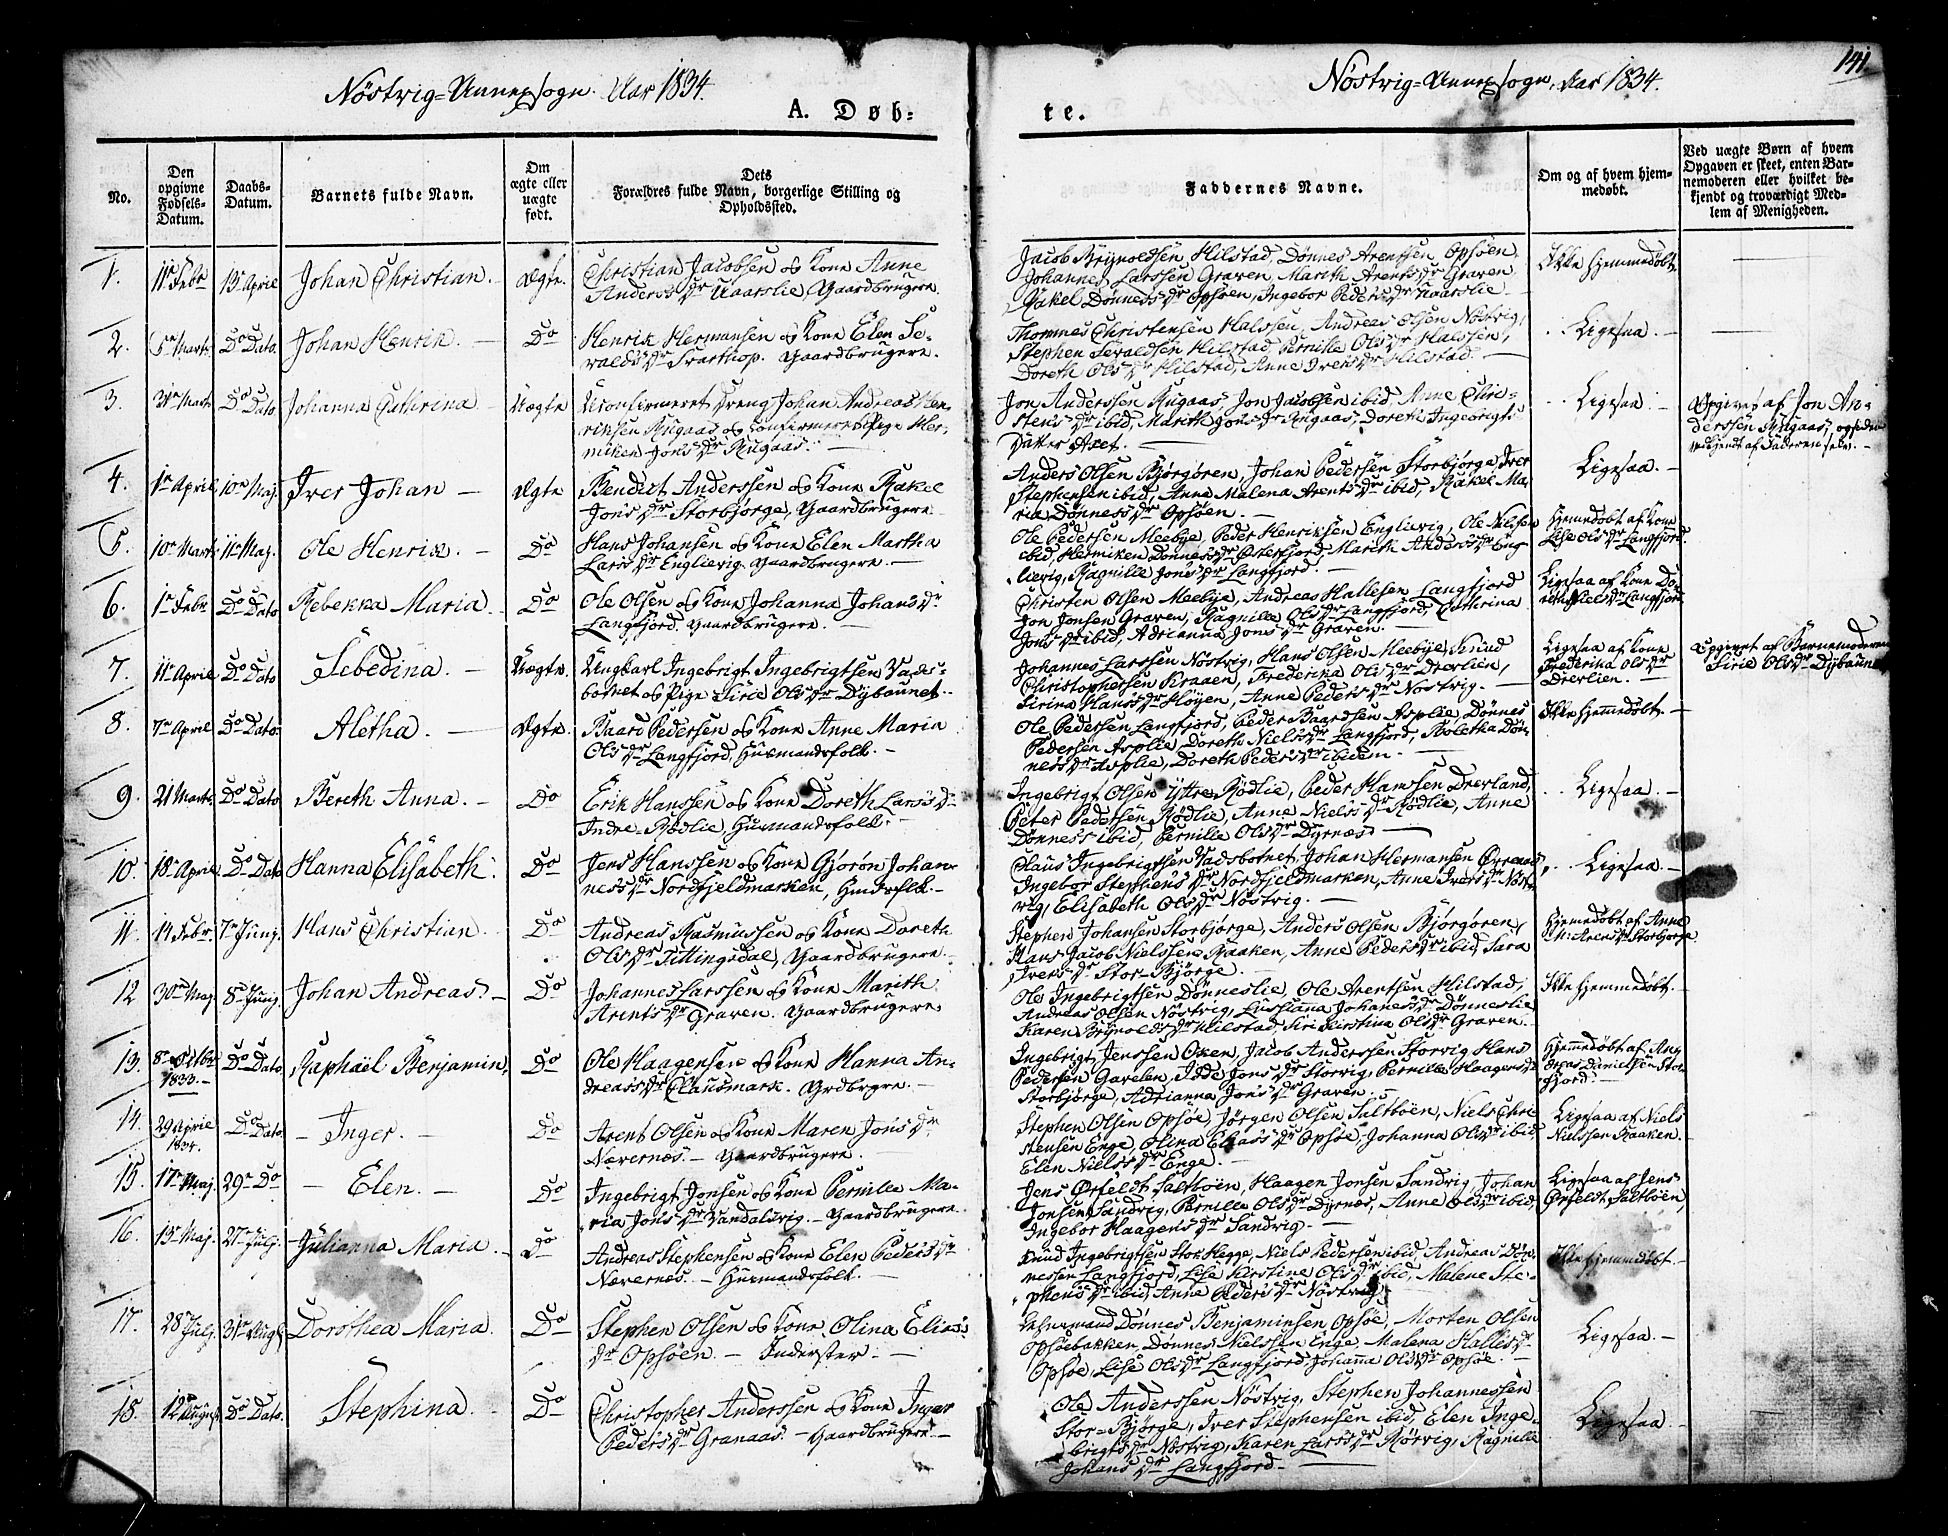 Nöstvig-Annexsogn. Aar 1834.
A. Døb-
No.
Den opgivne Fødsels-Datum.
Daabs-Datum.
Barnets fulde Navn.
Om ægte eller uægte født.
Dets Forældres fulde Navn, borgerlige Stilling og Opholdssted.
Nöstvig-Annexsogn, Aar 1834.
141.
te.
Faddernes Navne.
Om og af hvem hjemmedøbt.
Ved uægte Børn af hvem Opgaven er skeet, enten Barnemoderen eller hvilket bekjendt og troværdigt Medlem af Menigheden.
1. 11te Febr 13de April Johan Christian. Ægte. Christian Jacobsen og Kone Anne
Anders Dr Aarslie Gaardbrugere.
Jacob Brynoldsen Hilstad, Dönnes Arentsen Opsöen,
Johannes Larssen Graven, Marith Arents Dr Graven
Rakel Dönnes Dr Opsöen, Ingebor Peders Dr Aarslie
Ikke hjemmedöbt.
2. 5te Marts Do Dato. Johan Henrik. Do Henrik Hermansen og Kone Elen Se-
valds Dr Svarthop. Gaardbrugere.
Thommes Christensen Halssen, Andreas Olsen Nöstvig,
Stephen Sevaldsen Hilstad, Pernille Ols Dr Halssen,
Doreth Ols Dr Hilstad, Anne Ivers Dr Hilstad.
Ligesaa.
3. 31te Marts Do Dato Johanna Cathrina Uægte Uconfirmeret Dreng Johan Andreas Hen-
riksen Rugaas og confirmeret Pige Her-
miken Jons Dr Rugaas.
Jon Anderssen Rugaas Jon Jacobsen ibid, Anne Chri-
stens Dr ibid, Marith Jons Dr Rugaas, Doreth Ingebrigts
Datter Axet.
Ligesaa.
Opgivet af Jon An-
derssen Rugaas, ogsaa
vedkjendt af Faderen selv.
4. 1te April 10de Maj. Iver Johan Ægte Bendict Anderssen og Kone Rakel
Jons Dr Storbjörge, Gaardbrugere
Anders Olsen Björgören, Johan Pedersen Storbjörge Iver
Stephensen ibid, Anne Malena Arents Dr ibid, Rakel Ma-
ria Dönnes Dr Opsöen.
Ligesaa.
5. 10de Marts 11te Maj. Ole Henrik. Do Hans Johansen og Kone Elen Martha
Lars Dr Englievig. Gaardbrugere.
Ole Pedersen Meebye, Peder Henriksen Englievig, Ole Nilssen
ibid, Hermiken Dönnes Dr Österfjord, Marith Anders Dr Eng-
lievig, Ragnille Jons Dr Langfjord.
Hjemmedöbt af Kone
Lise Ols Dr Langfjord.
6. 1te Febr. Do Dato Rebekka Maria. Do Ole Olsen og Kone Johanna Johans Dr
Langfjord. Gaardbrugere.
Christen Olsen Meebye, Andreas Hallesen Langfjord
Jon Jonsen Graven, Ragnille Ols Dr Langfjord, Cathrina
Jons Dr ibid, Adrianna Jons Dr Graven.
Ligesaa af Kone Do-
reth Niels Dr Langfjord
7. 11te April Do Dato Sebedina. Uægte. Ungkarl Ingebrigt Ingebrigtsen Vads-
botnet og Pige Sirie Ols Dr Dybaunet.
Johannes Larssen Nöstvig, Hans Olsen Meebye, Knud
Christophersen Kraaen, Frederika Ols Dr Drevlien,
Sirina Hans Dr Höyen, Anne Peders Dr Nöstvig.
Ligesaa af Kone
Frederika Ols Dr
Drevlien.
Opgivet af Barnemoderen
Sirie Ols Dr Dybaunet
8. 7de April Do Dato. Aletha. Ægte. Baard Pedersen og Kone Anne Maria
Ols Dr Langfjord, Huusmandsfolk.
Ole Pedersen Langfjord, Peder Baardsen Asplie, Dönnes
Pedersen Asplie, Doreth Niels Dr Langfjord, Boletha Dön-
nes Dr Asplie, Doreth Peders Dr ibidem.
Ikke hjemmedöbt.
9. 21 Marts Do Dato Bereth Anna. Do Erik Hanssen og Kone Doreth Lars Dr
Indre-Rödlie, Huusmandsfolk.
Ingebrigt Olsen Yttre Rödlie, Peder Hanssen Drevland,
Peter Pedersen Rödlie, Anne Niels Dr Rödlie, Anne
Dönnes ibid, Pernille Ols Dr Dyrnæs
Ligesaa.
10. 18de April Do Dato Hanna Elisabeth. Do Jens Hanssen og Kone Gjorön Johan-
nes Dr Nordfjeldmarken,
Claus Ingebrigtsen Vadsbotnet, Johan Hermansen
Ingebor Stephens Dr Nordfjeldmarken, Anne Ivers Dr Nöst-
vig, Elisabeth Ols Dr Nöstvig.
Ligesaa.
11. 14 Febr. 7de Junj. Hans Christian. Do Andreas Rasmussen og Kone Doreth
Ols Dr Tittingsdal, Gaardbrugere.
Stephen Johansen Storbjörge, Anders Olsen Björgören,
Hans Jacob Nielssen Raaken, Anne Peders Dr ibid, Sara
Ivers Dr Stor-Björge.
Hjemmedöbt af Anne
M: Arents Dr Storbjörge
12 30te Maj. 8de Junj. Johan Andreas. Do Johannes Larssen og Kone Marith
Arents Dr Graven. Gaardbrugere.
Ole Ingebrigtsen Dönneslie, Ole Arentsen Hilstad,
Andreas Olsen Nöstvig, Lussianna Johanes Dr Dönneslie
Karen Brynolds Dr Hilstad, Siri Kirstina Ols Dr Graven
Ikke hjemmedöbt.
13. 8de Octbr 1833. Do Dato Raphaël Benjamin, Do Ole Haagensen og Kone Hanna An-
dreas Dr Clausmark. Grdbrgre.
Ingebrigt Jenssen Oxen, Jacob Anderssen Storvig Hans
Pedersen Gavelen, Idde Jons Dr Storvig, Pernille Haagens Dr
Storbjörge, Adrianna Jons Dr Graven.
Hjemmedöbt af An-
dreas Danielsen Stor-
fjord.
14. 29 April 1834. Do Dato. Inger. Do Arent Olsen og Kone Maren Jons Dr
Nævernæs. Gaardbrugere.
Stephen Olsen Opsöe, Jörgen Olsen Saltböen, Niels Chri-
stensen Enge, Olina Elias Dr Opsöe, Johanna Ols Dr ibid,
Elen Niels Dr Enge.
Ligesaa af Niels
Nielssen Raaken.
15. 17de Maj. 29de Do Elen. Do Ingebrigt Jonsen og Kone Pernille Ma-
ria Jons Dr Vandalsvig. Gaardbrugere.
Jens Örfeldt Saltböen, Haagen Jonsen Sandvig, Johan
Jonsen Sandvig, Pernille Ols Dr Dyrnes, Anne Ols Dr ibid,
Ingebor Haagens Dr Sandvig.
Ligesaa af Jens
Örfeldt Saltböen,
16. 19de Maj. 27de Julj. Julianna Maria. Do Andreas Stephensen og Kone Elen Peders Dr
Nævernæs. Huusmandsfolk.
Knud Ingebrigtsen Stor Hegge, Niels Pedersen ibid, Andreas Dön-
nessen Langfjord, Lise Kirstine Ols Dr ibid, Malene Ste-
phens Dr ibid, Anne Peders Dr Nöstvig
Ikke hjemmedöbt.
17. 28 Julj. 31te Aug. Dorothea Maria. Do Stephen Olsen og Kone Olina Elias
Dr Opsöen. Inderster.
Dönnes Benjaminsen Opsöe, Morten Olsen
Opsöebakken, Dönnes Nielssen Enge, Malena Halles Dr
Opsöe, Lise Ols Dr Langfjord, Johanna Ols Dr Opsöe.
Ligesaa.
18. 12 August Do Dato. Stephina. Do Christopher Anderssen og Kone Inger
Peders Dr Granaas. Gaardbrugere.
Ole Anderssen Nöstvig, Stephen Johannessen
Stor-Björge, Iver Stephensen ibid, Elen Inge-
brigts Dr Nöstvig, Karen Lars Dr Rörvig, Ragnille
Johans Dr Langfjord.
Ligesaa.